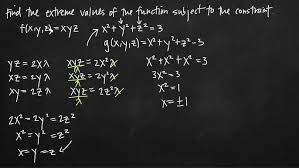 Find the extreme values of the function subject to the constraint.
f(x,y,z)=xyz
x²+y²+z²=3
g(x,y,z)=x²+y²+z²-3
yz=2xλ
xz=2yλ
xy=2zλ
xyz=2x²λ
xyz=2y²λ
xyz=2z²λ
x²+x²+x²=3
3x²=3
x²=1
x=±1
2x²=2y²=2z²
x²=y²=z²
x=y=z